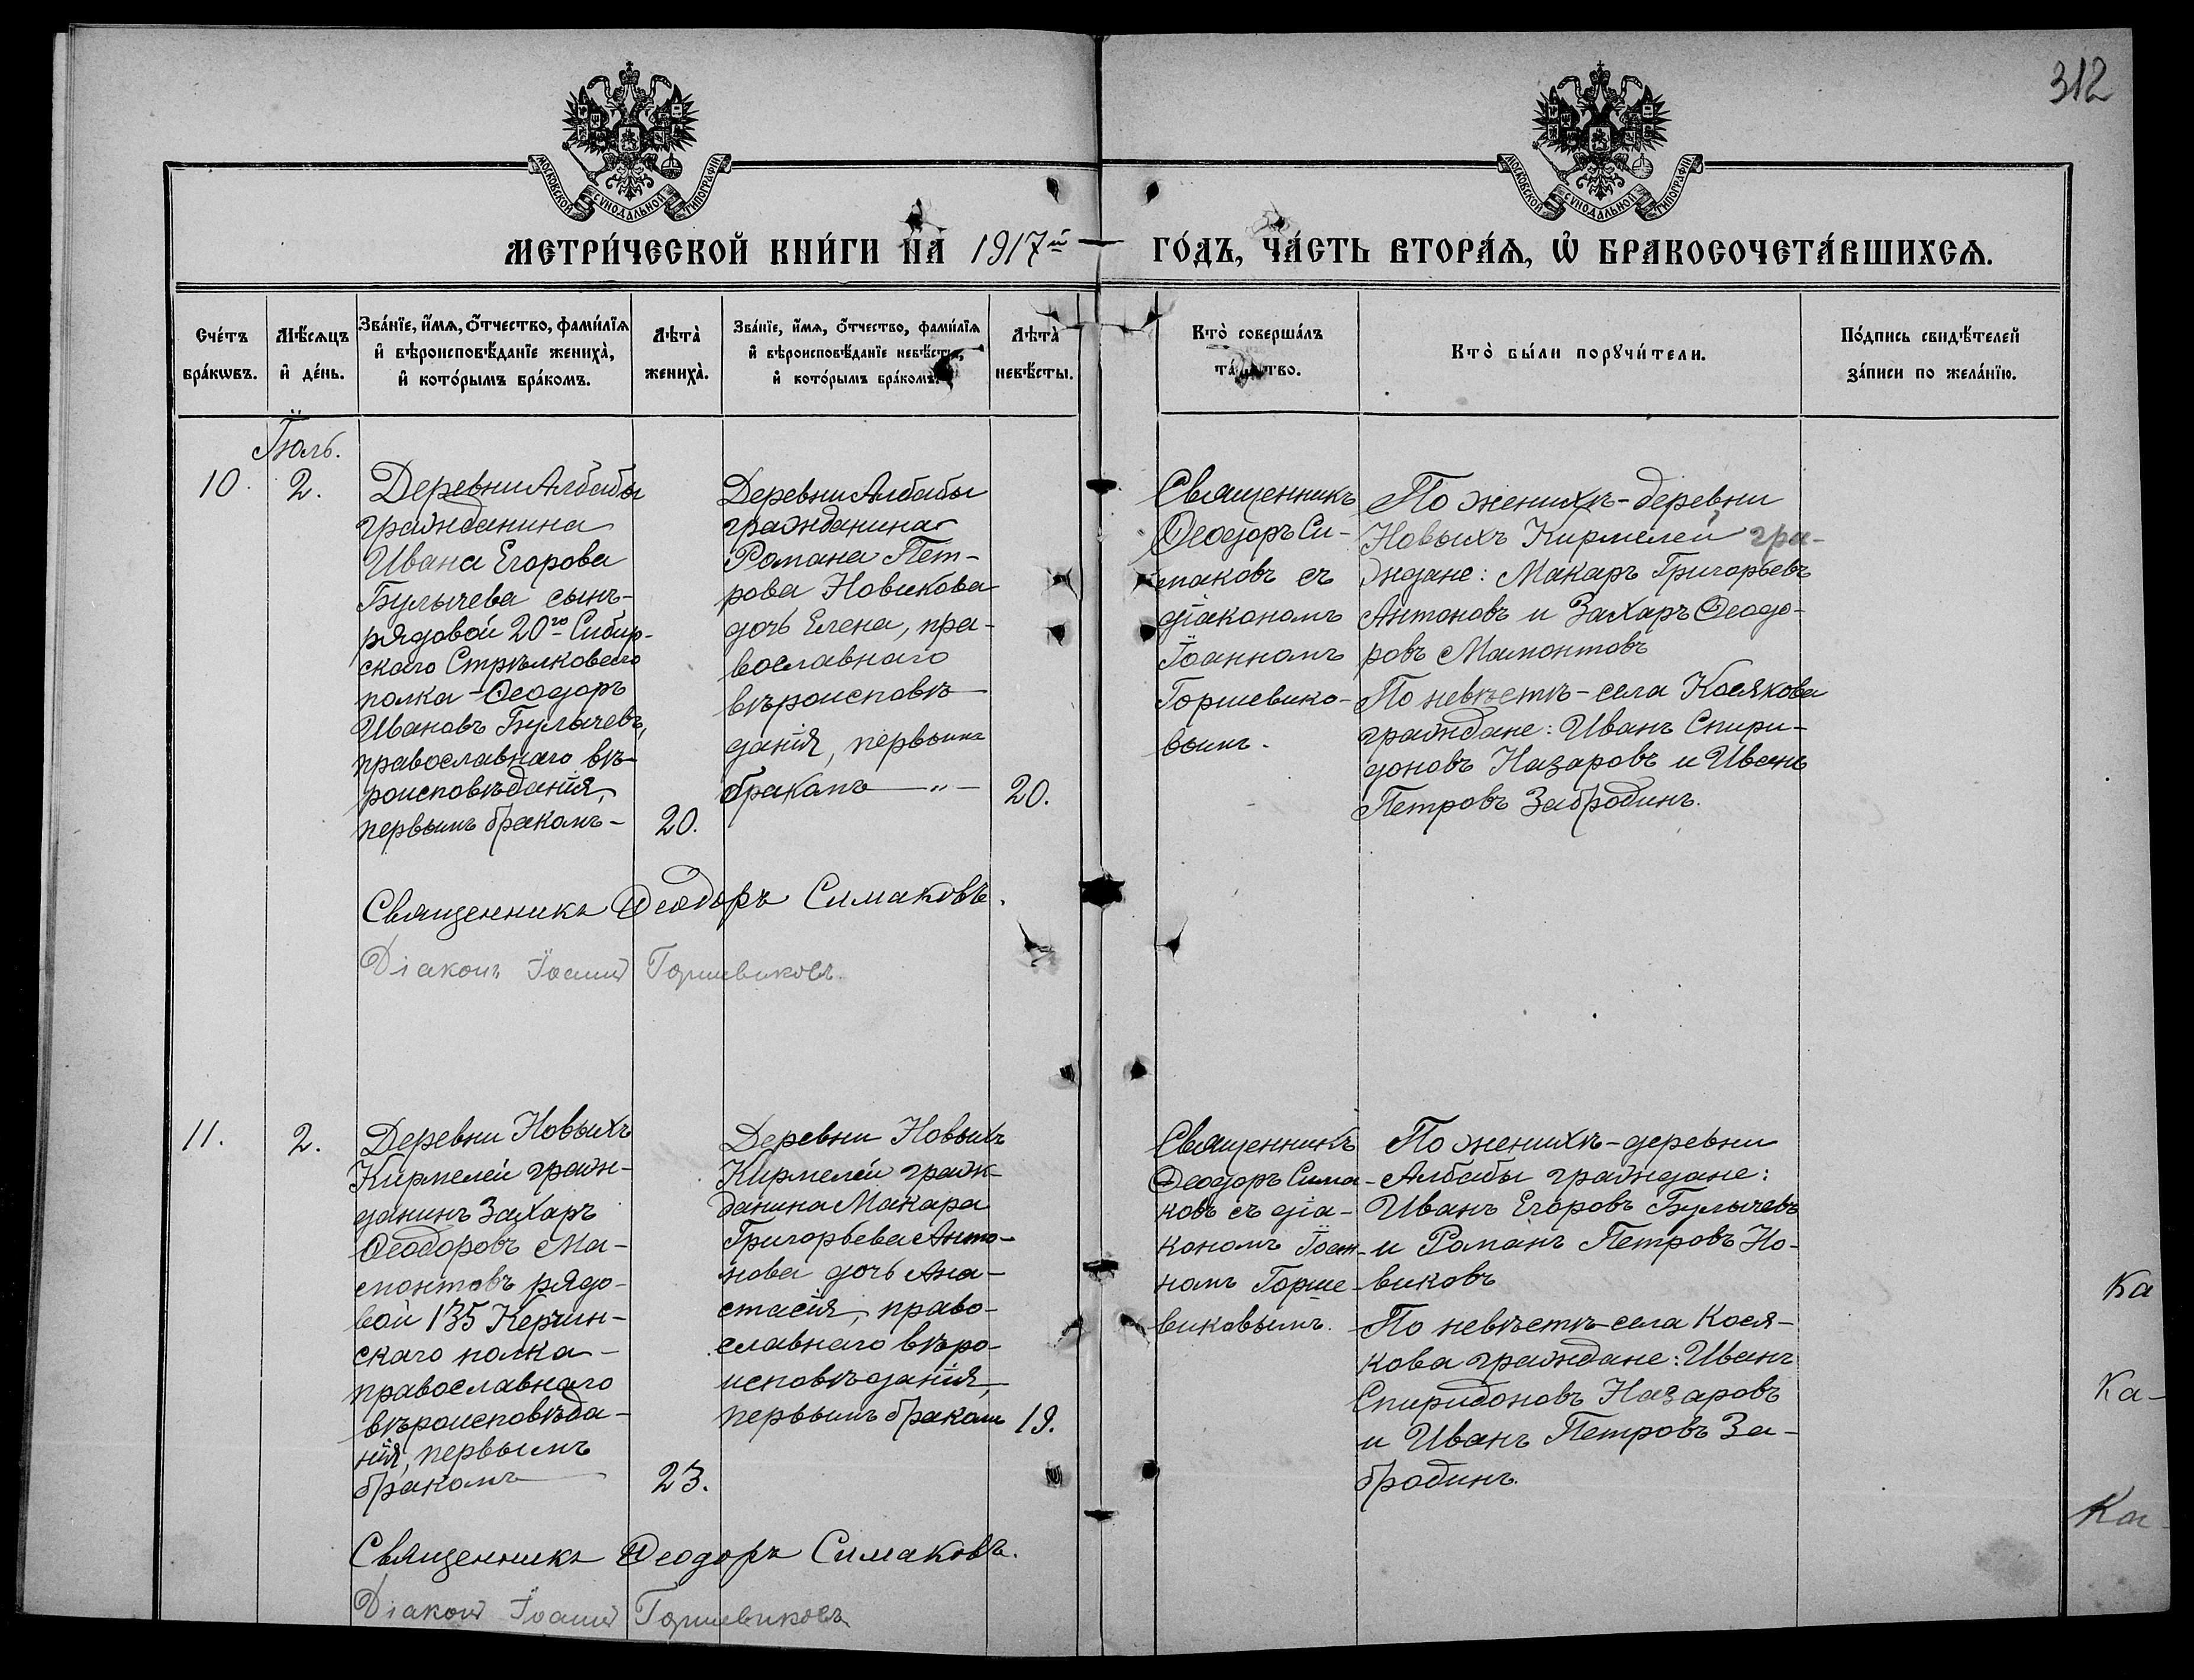 312
МОСКОВСКОЙ СѴНОДАЛЬНОЙ ТИПОГРАФІИ
МОСКОВСКОЙ СѴНОДАЛЬНОЙ ТИПОГРАФІИ
МЕТРИ́ЧЕСКОЙ КНИ́ГИ НА 1917й ГО́ДЪ, ЧА́СТЬ ВТОРА́Ѧ, Ѽ БРАКОСОЧЕТА́ВШИХСѦ.
Сче́тъ
бра́кѡвъ.
Мѣ́сѧцъ
и҆ де́нь.
Зва́нїе, и҆́мѧ, ѻ҆́тчество, фами́лїѧ
и҆ вѣроисповѣ́данїе жениха̀,
и҆ кото́рымъ бра́комъ.
Лѣта̀
жениха̀.
Зва́нїе, и҆́мѧ, ѻ҆́тчество, фами́лїѧ
и҆ вѣроисповѣ́данїе невѣ́сты,
и҆ кото́рымъ бра́комъ.
Лѣта̀
невѣ́сты.
Кто̀ соверша́лъ
та́инство.
Кто̀ бы́ли порꙋчи́тели.
По́дпись свидѣ́телей
за́писи по жела́нїю.
Іюль.
10. 2.
Деревни Албабы
гражданина
Ивана Егорова
Булычева сынъ-
рядовой 20го Сибир-
скаго Стрѣлковаго
полка - Ѳеодоръ
Ивановъ Булычевъ,
православнаго вѣ-
роисповѣданія,
первымъ бракомъ -
20.
Деревни Албабы
гражданина
Романа Пет-
рова Новикова
дочь Елена, пра-
вославнаго
вѣроисповѣ-
данія, первымъ
бракомъ — „ —
20.
Священникъ
Ѳеодоръ Си-
маковъ съ
діакономъ
Іоанномъ
Горшевико-
вымъ.
По женихѣ - деревни
Новыхъ Кирмелей гра-
ждане: Макаръ Григорьевъ
Антоновъ и Захаръ Ѳеодо-
ровъ Мамонтовъ
По невѣстѣ - села Косякова
граждане: Иванъ Спири-
доновъ Назаровъ и Иванъ
Петровъ Забродинъ.
Священникъ Ѳеодоръ Симаковъ.
Діаконъ Іоаннъ Горшевиковъ.
11. 2.
Деревни Новыхъ
Кирмелей граж-
данинъ Захаръ
Ѳеодоровъ Ма-
монтовъ рядо-
вой 135 Керчин-
скаго полка -
православнаго
вѣроисповѣда-
нія, первымъ
бракомъ
23.
Деревни Новыхъ
Кирмелей граж-
данина Макара
Григорьева Анто-
нова дочь Ана-
стасія, право-
славнаго вѣро-
исповѣданія,
первымъ бракомъ
19.
Священникъ
Ѳеодоръ Сима-
ковъ съ діа-
кономъ Іоан-
номъ Горше-
виковымъ.
По женихѣ - деревни
Албабы граждане:
Иванъ Егоровъ Булычевъ
и Романъ Петровъ Но-
виковъ
По невѣстѣ - села Кося-
кова граждане: Иванъ
Спиридоновъ Назаровъ
и Иванъ Петровъ За-
бродинъ.
Священникъ Ѳеодоръ Симаковъ.
Діаконъ Іоаннъ Горшевиковъ
Ка
Ка-
Ка-